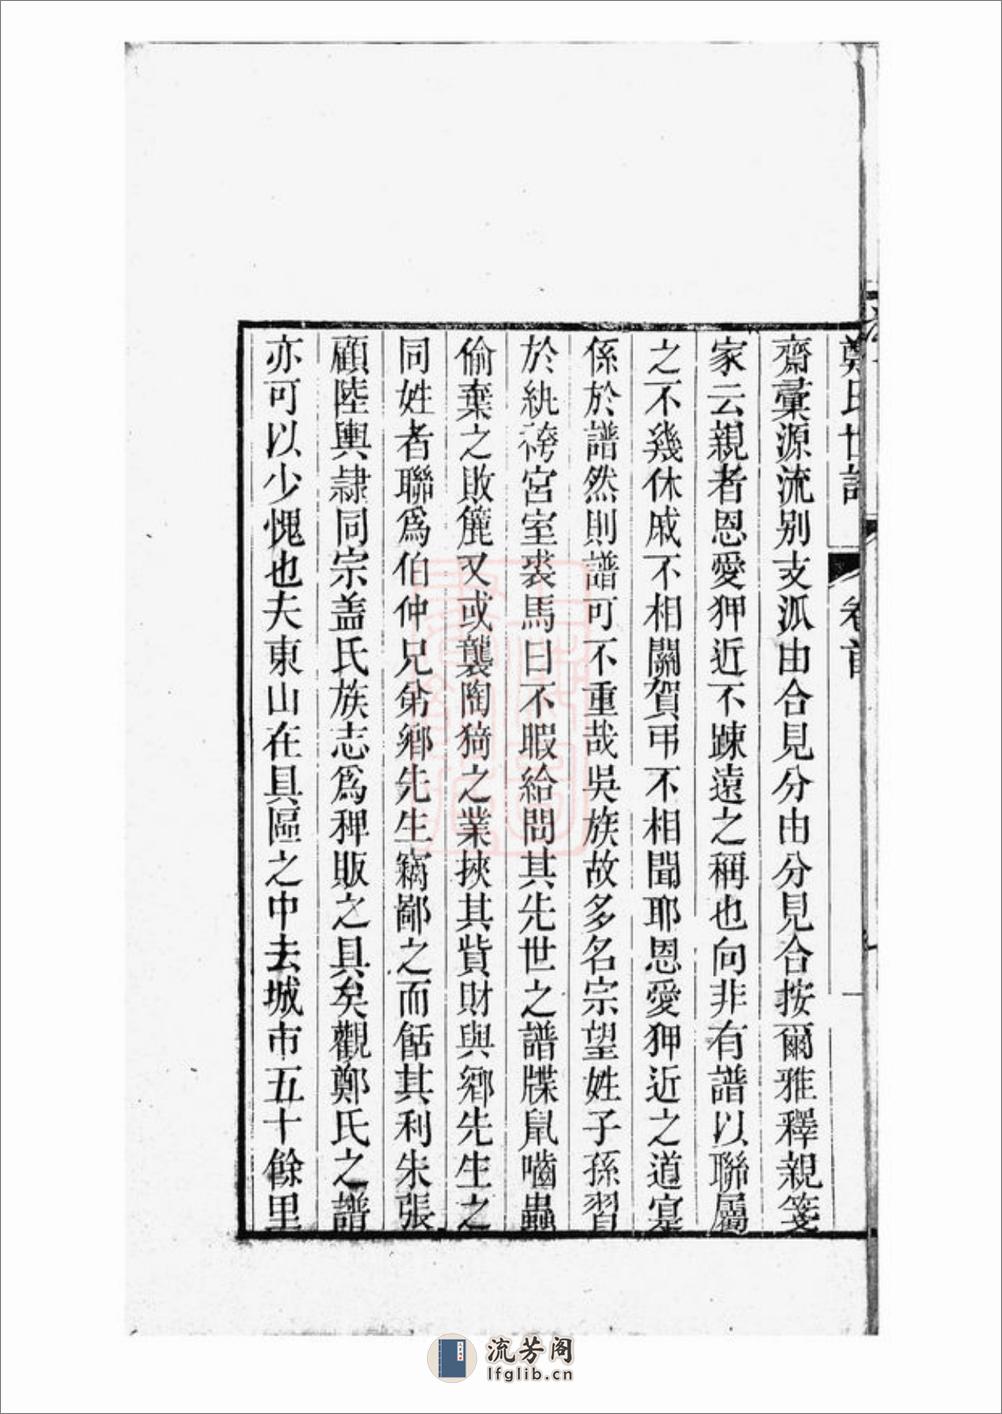 鄭氏世譜 卷首 一
齋彚源流别支派由合見分由分見合按爾雅釋親箋
家云親者恩愛狎近不踈遠之稱也向非有譜以聯屬
之不幾休戚不相關賀弔不相聞耶恩愛狎近之道寔
係於譜然則譜可不重哉吳族故多名宗望姓子孫習
於紈袴宮室裘馬日不暇給問其先世之譜牒鼠嚙蟲
偷棄之敗簏又或襲陶猗之業挾其貲財與鄉先生之
同姓者聯爲伯仲兄弟鄉先生竊鄙之而餂其利朱張
顧陸輿隷同宗盖氏族志爲稗販之具矣觀鄭氏之譜
亦可以少愧也夫東山在具區之中去城市五十餘里
流芳阁
lfglib.cn